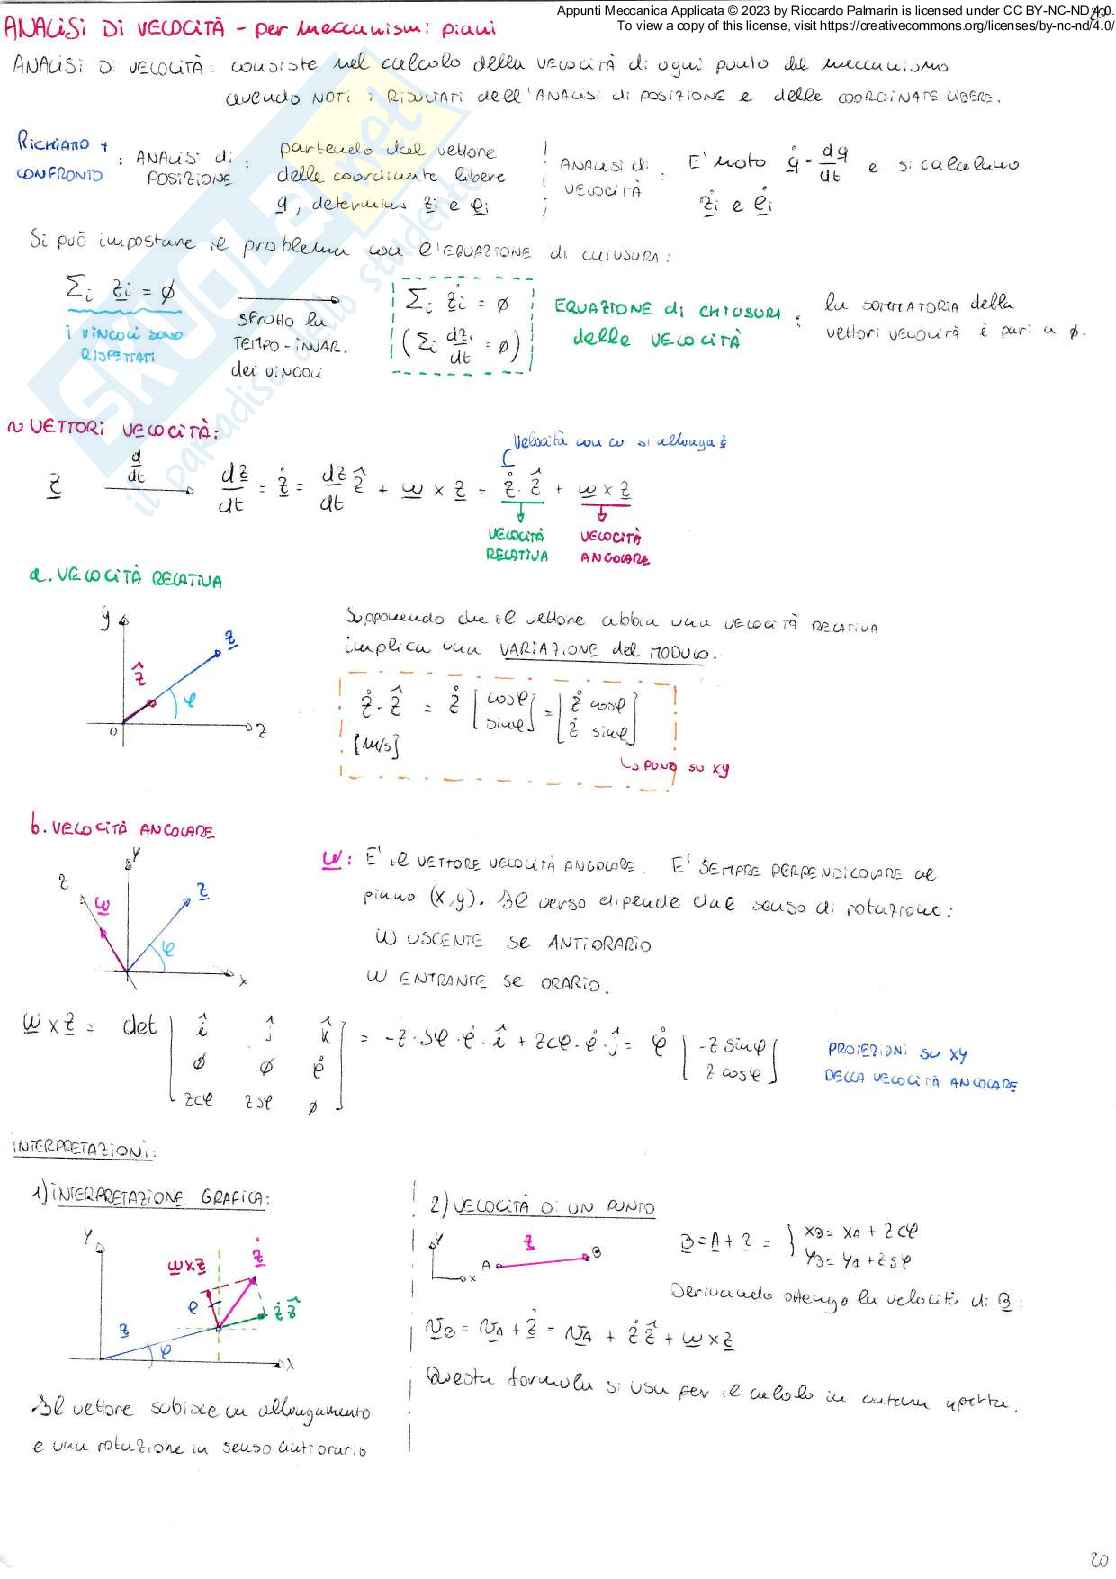 Appunti Meccanica Applicata © 2023 by Riccardo Palmarin is licensed under CC BY-NC-ND 4.0.
To view a copy of this license, visit https://creativecommons.org/licenses/by-nc-nd/4.0/
ANALISI DI VELOCITÀ - per meccanismi piani
ANALISI DI VELOCITÀ: consiste nel calcolo della VELOCITÀ di ogni punto del meccanismo
avendo NOTI i RISULTATI dell'ANALISI di POSIZIONE e delle COORDINATE LIBERE.
RICHIAMO + CONFRONTO : ANALISI di POSIZIONE : partendo dal vettore delle coordinate libere q, determino zi e φi
ANALISI di VELOCITÀ : E' noto q̇ = dq/dt e si calcolano żi e φ̇i
Si può impostare il problema con l'EQUAZIONE di CHIUSURA:
Σi zi = ∅
i VINCOLI SONO RISPETTATI
SFRUTTO la TEMPO-INVAR. dei VINCOLI
Σi żi = ∅
(Σi dzi/dt = ∅)
EQUAZIONE di CHIUSURA delle VELOCITÀ : la SOMMATORIA della vettori velocità è pari a ∅.
~ VETTORI VELOCITÀ:
Velocità con cui si allunga z
z d/dt → dz/dt = ż = dz/dt ẑ + ω × z = ż · ẑ + ω × z
VELOCITÀ RELATIVA
VELOCITÀ ANGOLARE
a. VELOCITÀ RELATIVA
y
z
ẑ
φ
O
Supponendo che il vettore abbia una VELOCITÀ RELATIVA
implica una VARIAZIONE del MODULO.
ż · ẑ = ż [cosφ sinφ] = [ż cosφ ż sinφ]
[m/s]
↳ PROIEZ. su xy
b. VELOCITÀ ANGOLARE
y
z
ω
z
φ
x
ω: E' il VETTORE VELOCITÀ ANGOLARE. E' SEMPRE PERPENDICOLARE al
piano (x,y). Il verso dipende dal senso di rotazione:
ω USCENTE se ANTIORARIO
ω ENTRANTE se ORARIO.
ω × z = det | î ĵ k̂ | ∅ ∅ φ̇ | zcφ zsφ ∅ | = -z·sφ·φ̇·î + zcφ·φ̇·ĵ = φ̇ [-z sinφ z cosφ]
PROIEZIONI SU XY
DELLA VELOCITÀ ANGOLARE
INTERPRETAZIONI:
1) INTERPRETAZIONE GRAFICA:
Y
ω×z
ż
żẑ
z
φ
X
Il vettore subisce un allungamento
e una rotazione in senso antiorario
2) VELOCITÀ DI UN PUNTO
Y
x
A
z
B
B = A + z = { xB = xA + zcφ
yB = yA + zsφ
Derivando ottengo la velocità di B:
vB = vA + ż = vA + żẑ + ω × z
Questa formula si usa per il calcolo in catena aperta.
20